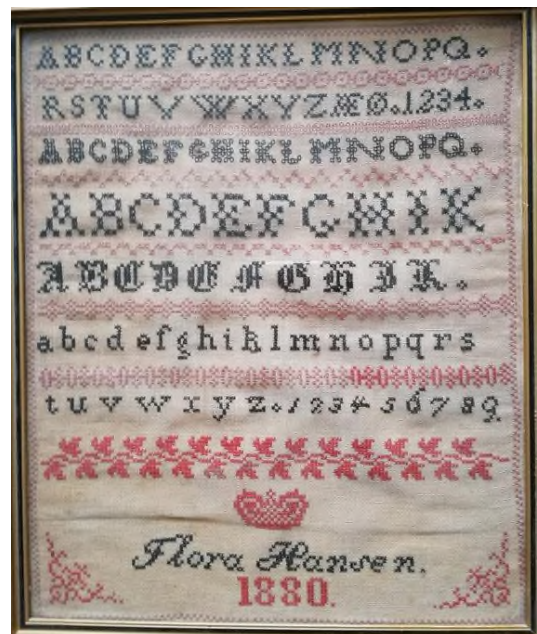 ABCDEFGHIKLMNOPQ.
RSTUVWXYZÆØ.1234.
ABCDEFGHIKLMNOPQ.
ABCDEFGHIK
ABCDEFGHIK.
abcdefghiklmnopqrs
tuvwxyz.123456789
Flora Hansen.
1880.